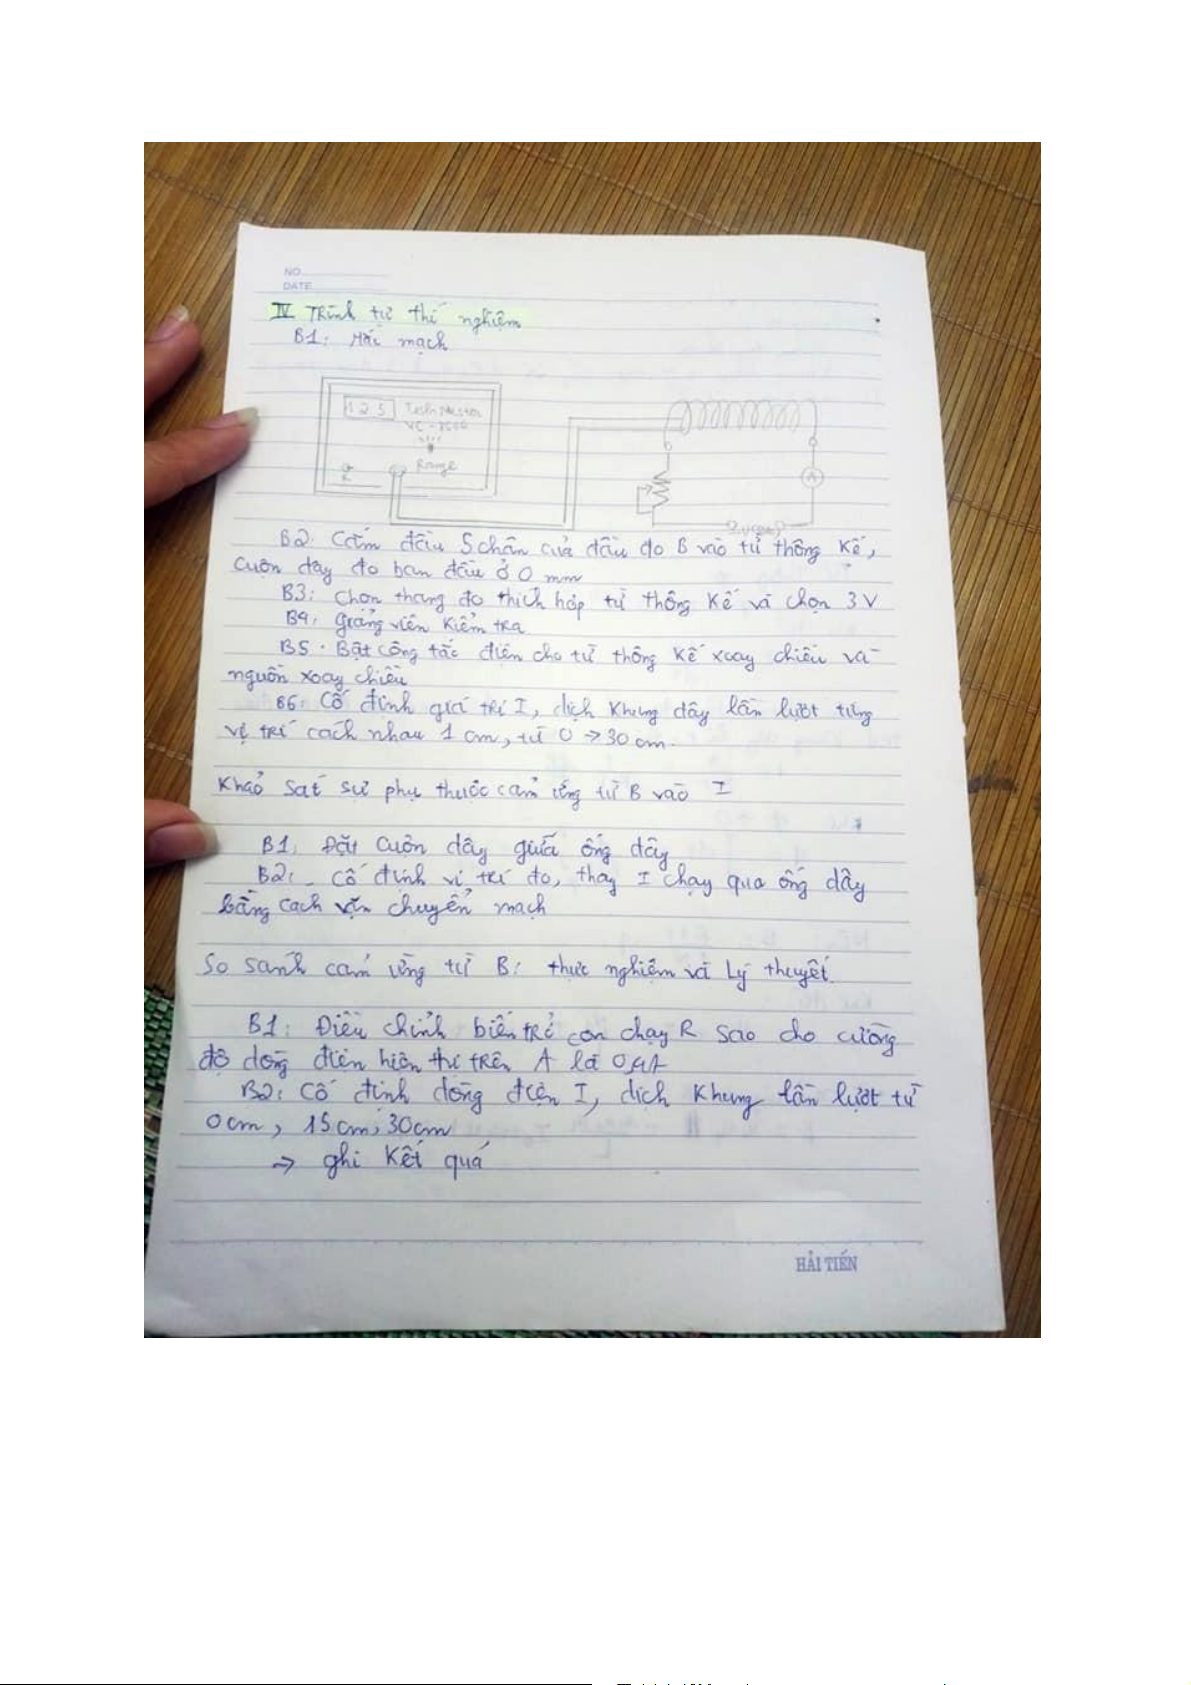 NO
DATE
IV Trình tự thí nghiệm
B1: Mắc mạch
1 2 5
Range
A
B2. Cắm đầu 5 chân của đầu đo B vào từ thông kế,
cuộn dây đo ban đầu ở 0 mm
B3: Chọn thang đo thích hợp từ thông kế và chọn 3V
B4: Giảng viên kiểm tra
B5. Bật công tắc điện cho từ thông kế xoay chiều và
nguồn xoay chiều
B6: Cố định giá trị I, dịch khung dây lần lượt từng
vị trí cách nhau 1 cm, từ 0 → 30 cm.
Khảo sát sự phụ thuộc cảm ứng từ B vào I
B1: Đặt cuộn dây giữa ống dây
B2: Cố định vị trí đo, thay I chạy qua ống dây
bằng cách vặn chuyển mạch
So sánh cảm ứng từ B: thực nghiệm và Lý thuyết.
B1: Điều chỉnh biến trở con chạy R sao cho cường
độ dòng điện hiện thị trên A là 0,4A
B2: Cố định dòng điện I, dịch khung lần lượt từ
0cm, 15cm, 30cm
→ ghi kết quả
HẢI TIẾN